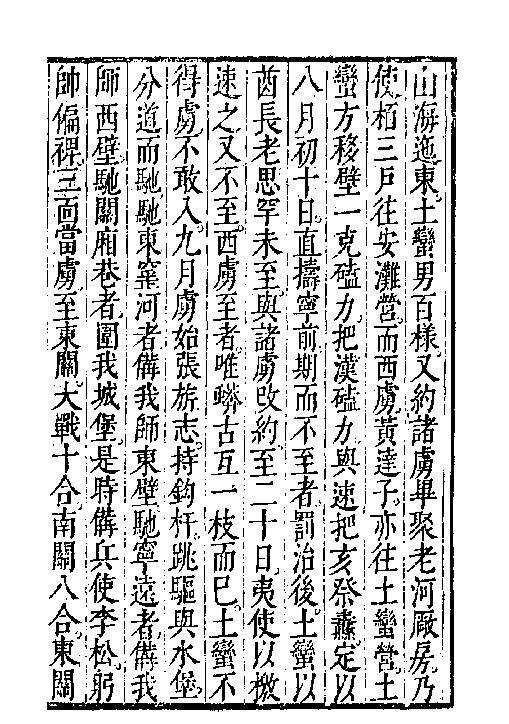 山海迤東土蠻男百樣又約諸虜畢聚老河厰房乃
使栢三戶往安灘營而西虜黃達子亦往土蠻營土
蠻方移壁一克磕力把漢磕力與速把亥祭纛定以
八月初十日直擣寧前期而不至者罰治後土蠻以
酋長老思罕未至與諸虜改約至二十日夷使以檄
速之又不至西虜至者唯蟒古互一枝而巳土蠻不
得虜不敢入九月虜始張旂志持鈎杆跳驅與水堡
分道而馳馳東窰河者備我師東壁馳寧遠者備我
師西壁馳關廂巷者圍我城堡是時備兵使李松躬
帥偏裨三面當虜至東關大戰十合南關八合東關